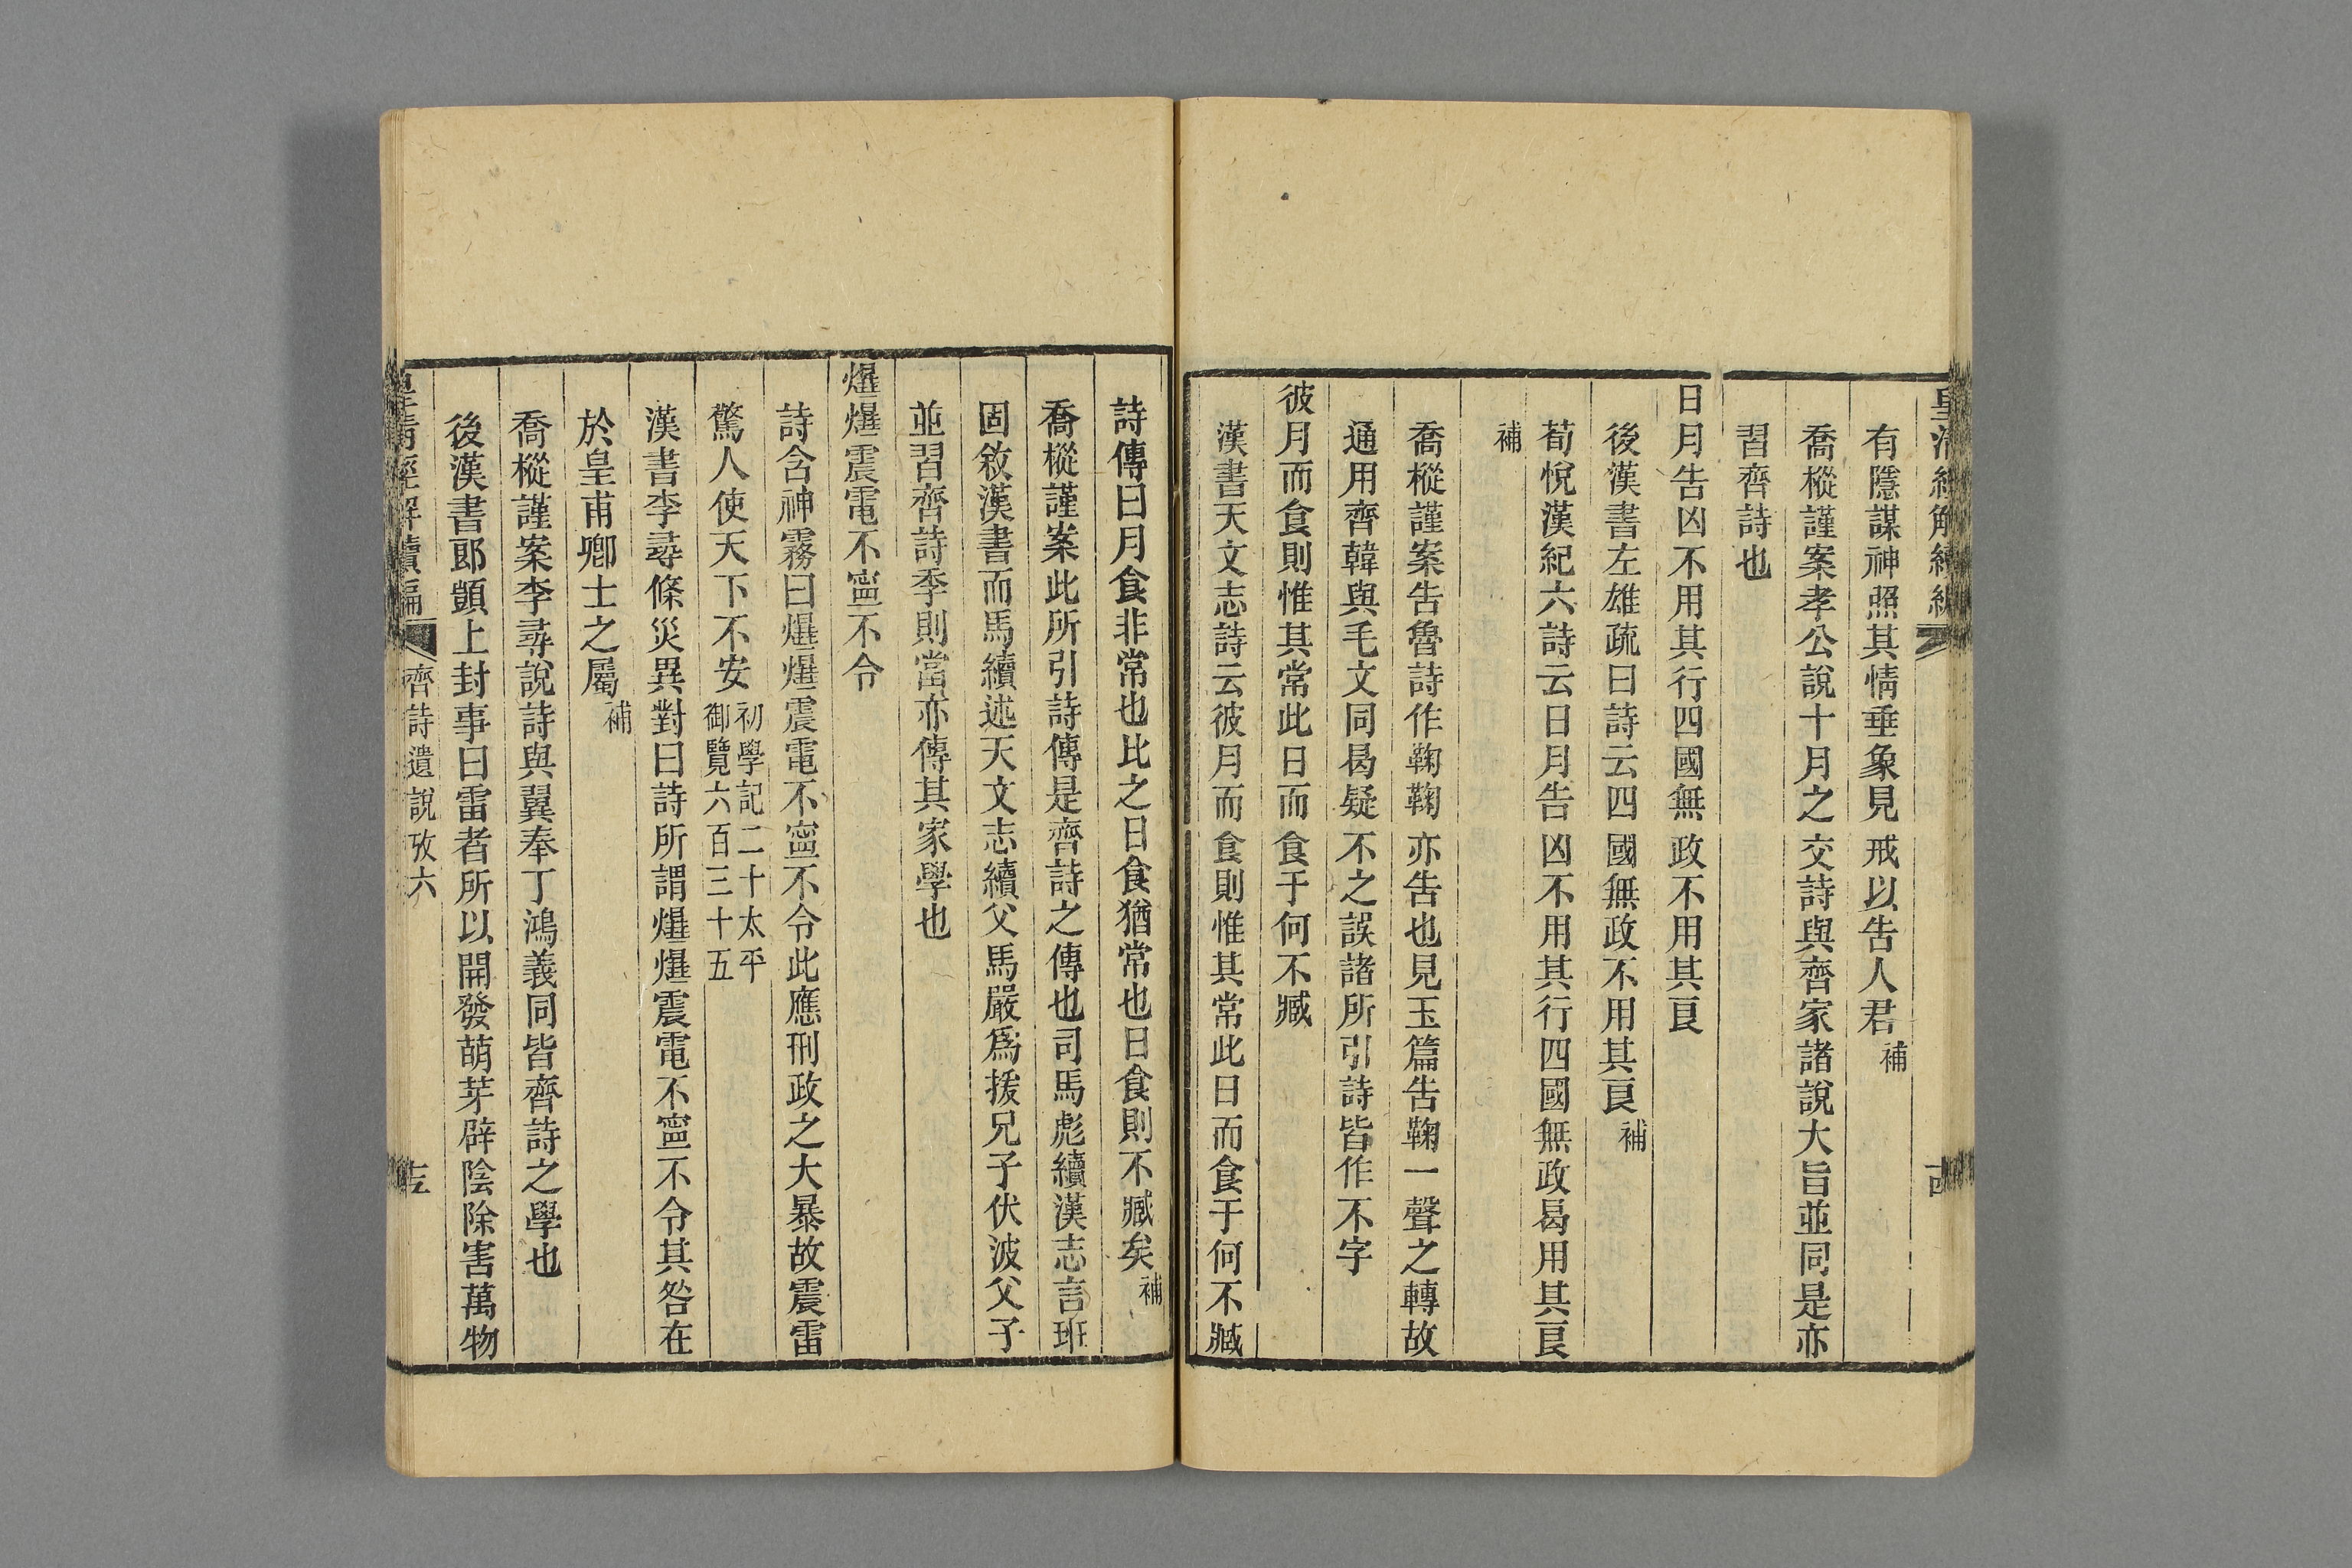 有隱謀神照其情垂象見戒以告人君補
喬樅謹案孝公說十月之交詩與齊家諸說大旨並同是亦
習齊詩也
日月告凶不用其行四國無政不用其良
後漢書左雄疏曰詩云四國無政不用其良補
荀悅漢紀六詩云日月告凶不用其行四國無政曷用其良
補
喬樅謹案告魯詩作鞠鞫亦告也見玉篇告鞠一聲之轉故
通用齊韓與毛文同曷疑不之誤諸所引詩皆作不字
彼月而食則惟其常此日而食于何不臧
漢書天文志詩云彼月而食則惟其常此日而食于何不臧
詩傳曰月食非常也比之日食猶常也日食則不臧矣補
喬樅謹案此所引詩傳是齊詩之傳也司馬彪續漢志言班
固敘漢書而馬續述天文志續父馬嚴爲援兄子伏波父子
並習齊詩季則當亦傳其家學也
爗爗震電不寍不令
詩含神霧曰爗爗震電不寍不令此應刑政之大暴故震雷
驚人使天下不安初學記二十太平御覽六百三十五
漢書李尋條災異對曰詩所謂爗爗震電不寍不令其咎在
於皇甫卿士之屬補
喬樅謹案李尋說詩與翼奉丁鴻義同皆齊詩之學也
後漢書郎顗上封事曰雷者所以開發萌芽辟陰除害萬物
皇清經解續編 齊詩遺說攷六